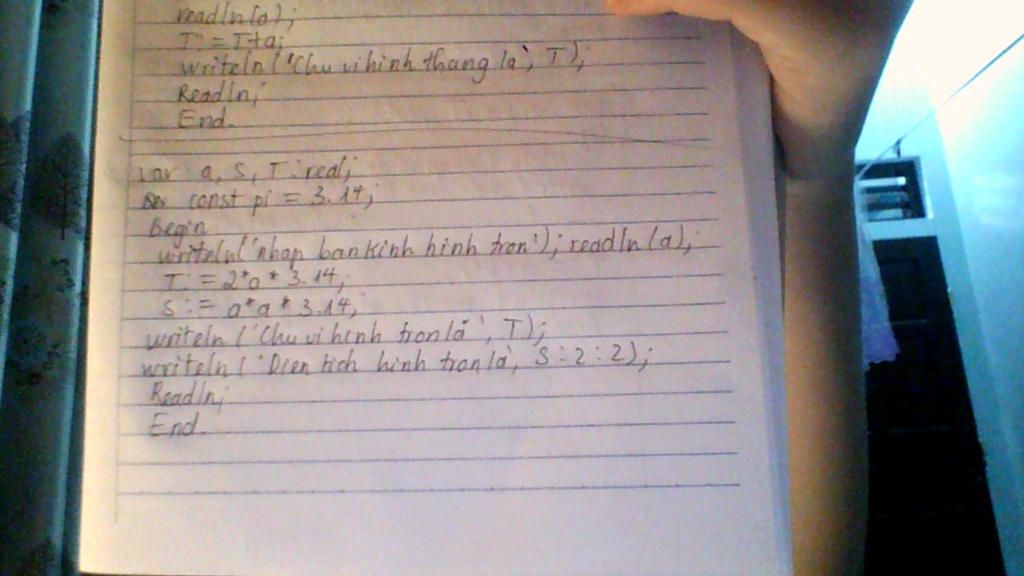 readln(a);
T:=T+a;
writeln('Chu vi hinh thang la', T);
Readln;
End.
var a, S, T: real;
const pi = 3.14;
Begin
writeln('nhap ban kinh hinh tron'); readln(a);
T:= 2*a*3.14;
S:= a*a*3.14;
writeln('Chu vi hinh tron là', T);
writeln('Dien tich hinh tron là', S:2:2);
Readln;
End.